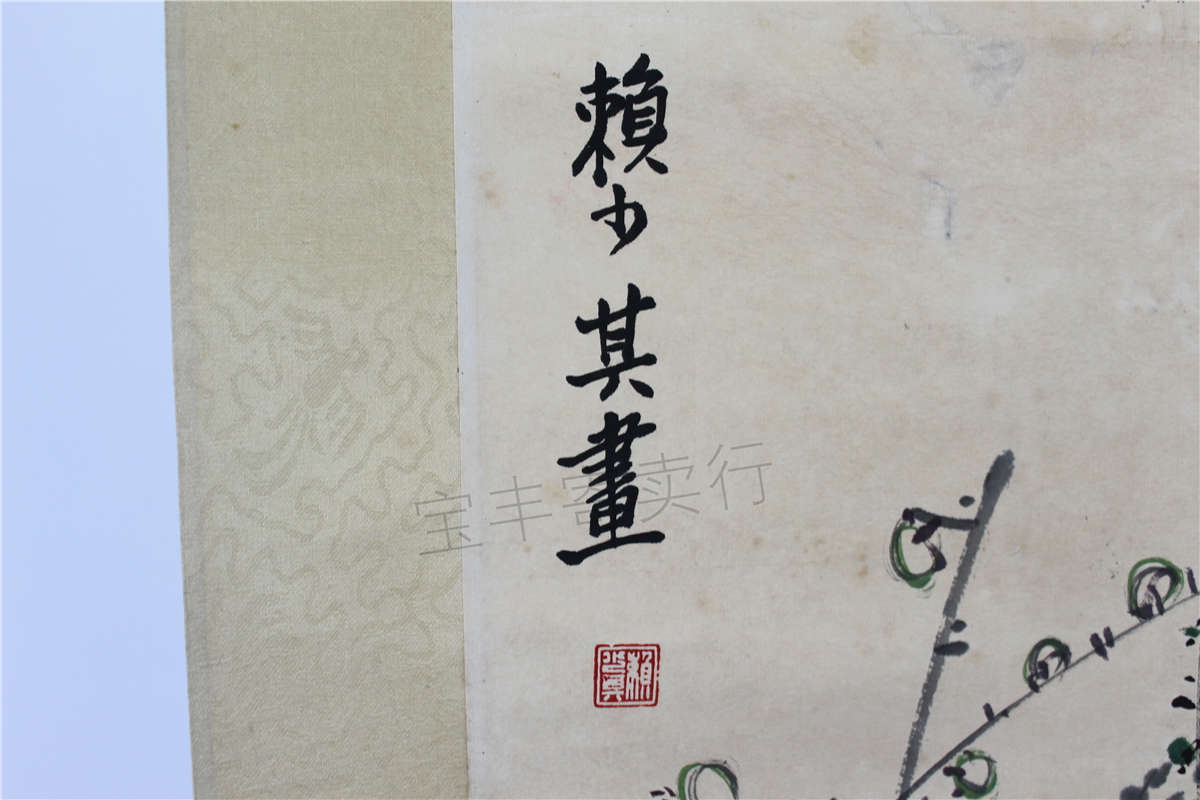 賴少其畫
賴少其
宝丰寄卖行